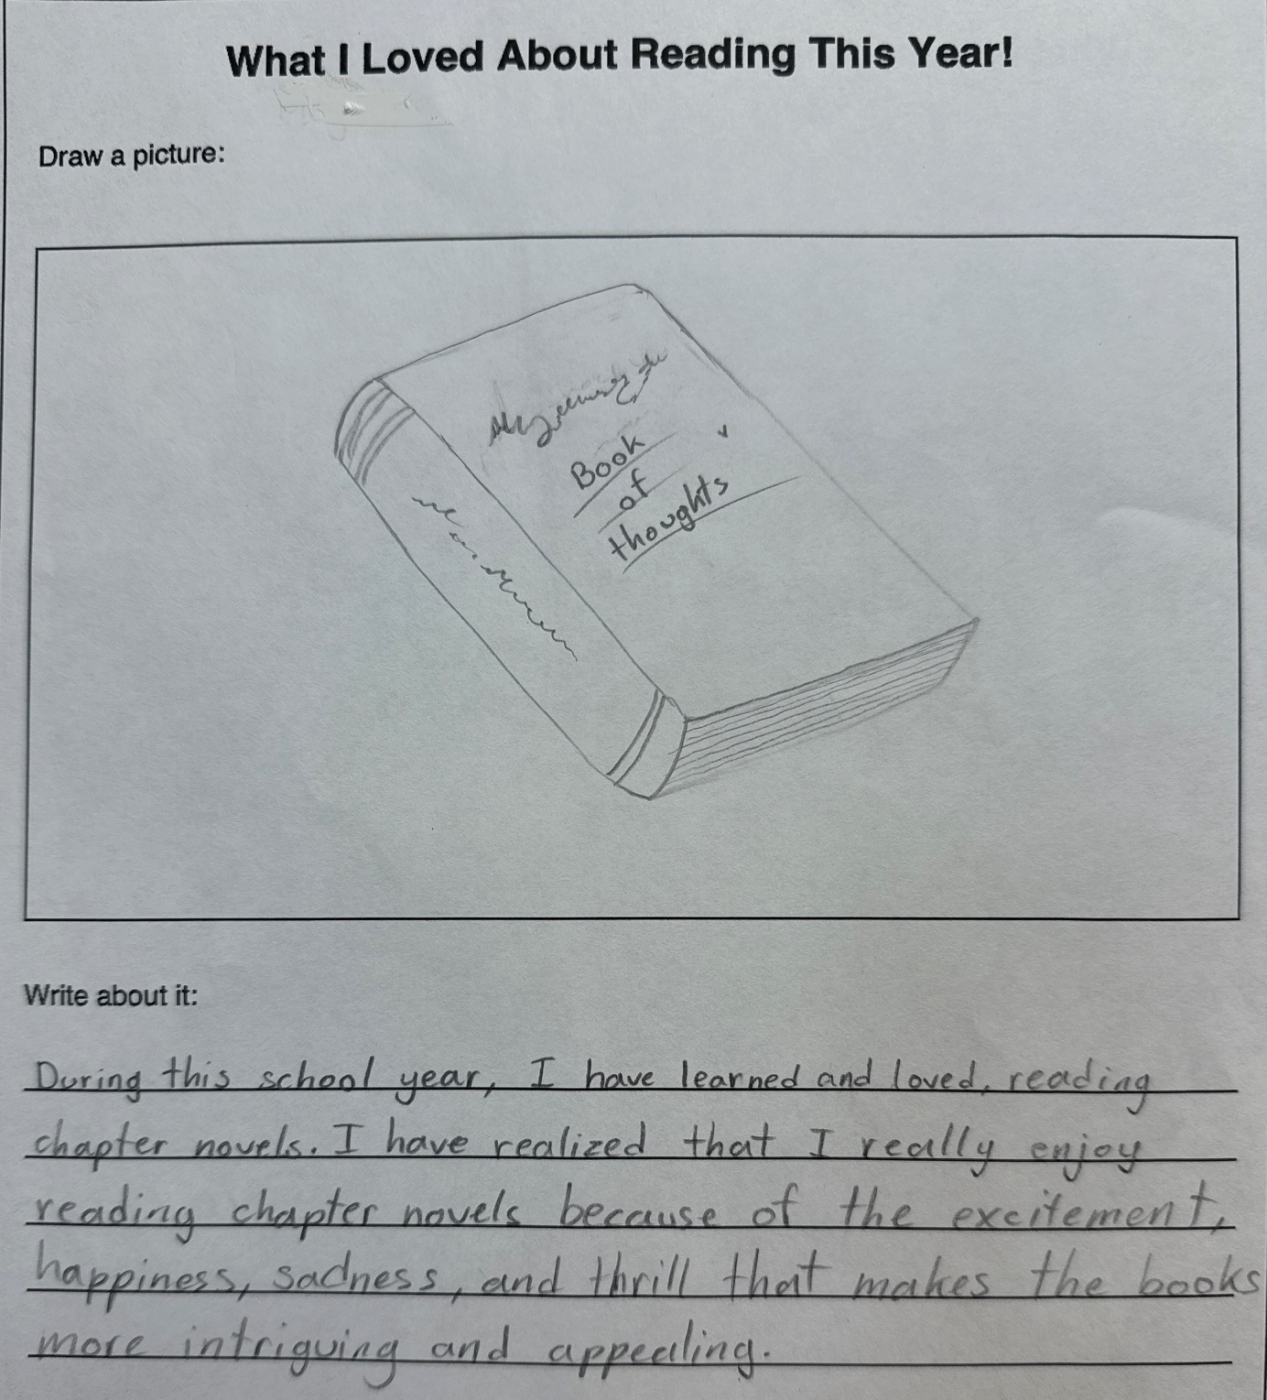 What I Loved About Reading This Year!
Draw a picture:
Book
of
thoughts
Write about it:
During this school year, I have learned and loved, reading
chapter novels. I have realized that I really enjoy
reading chapter novels because of the excitement,
happiness, sadness, and thrill that makes the books
more intriguing and appealing.